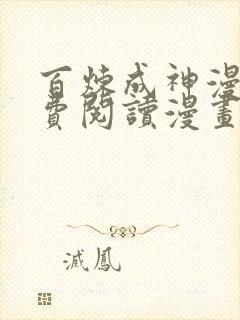 百炼成神漫
費閱讀漫畫
滅鳳